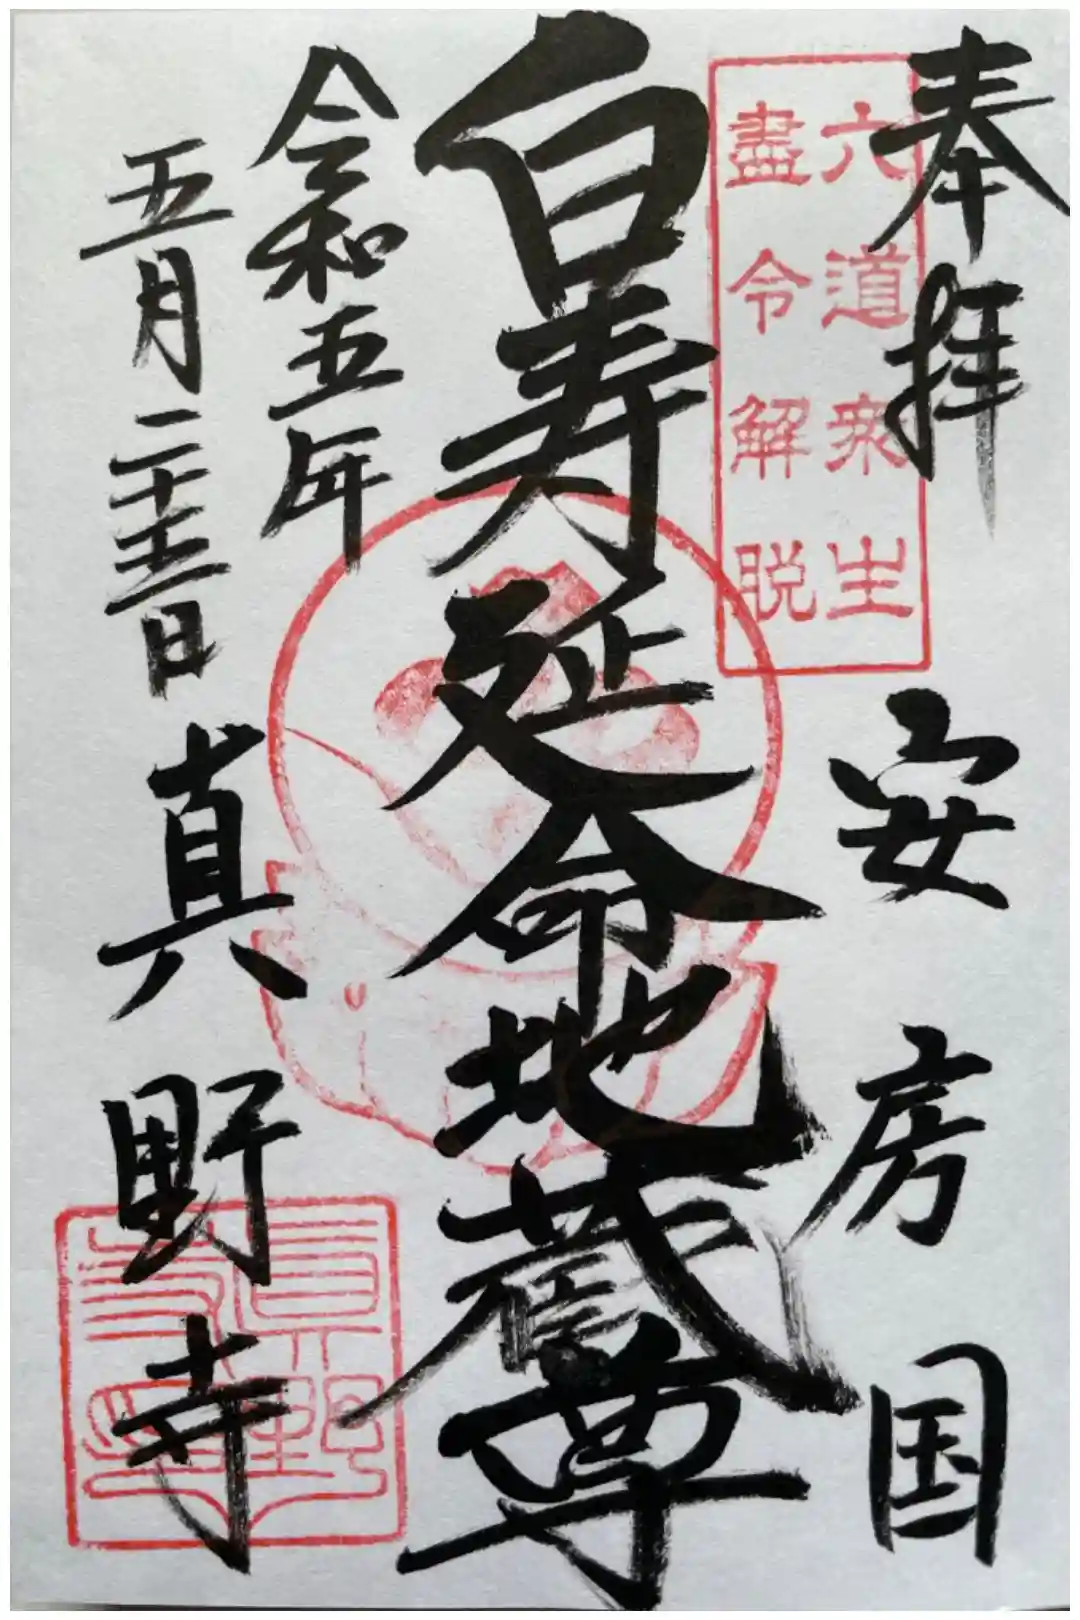 奉拝
安房国
六道衆生
盡令解脱
白寿延命地蔵尊
令和五年
五月二十五日
真野寺
真野
寺印